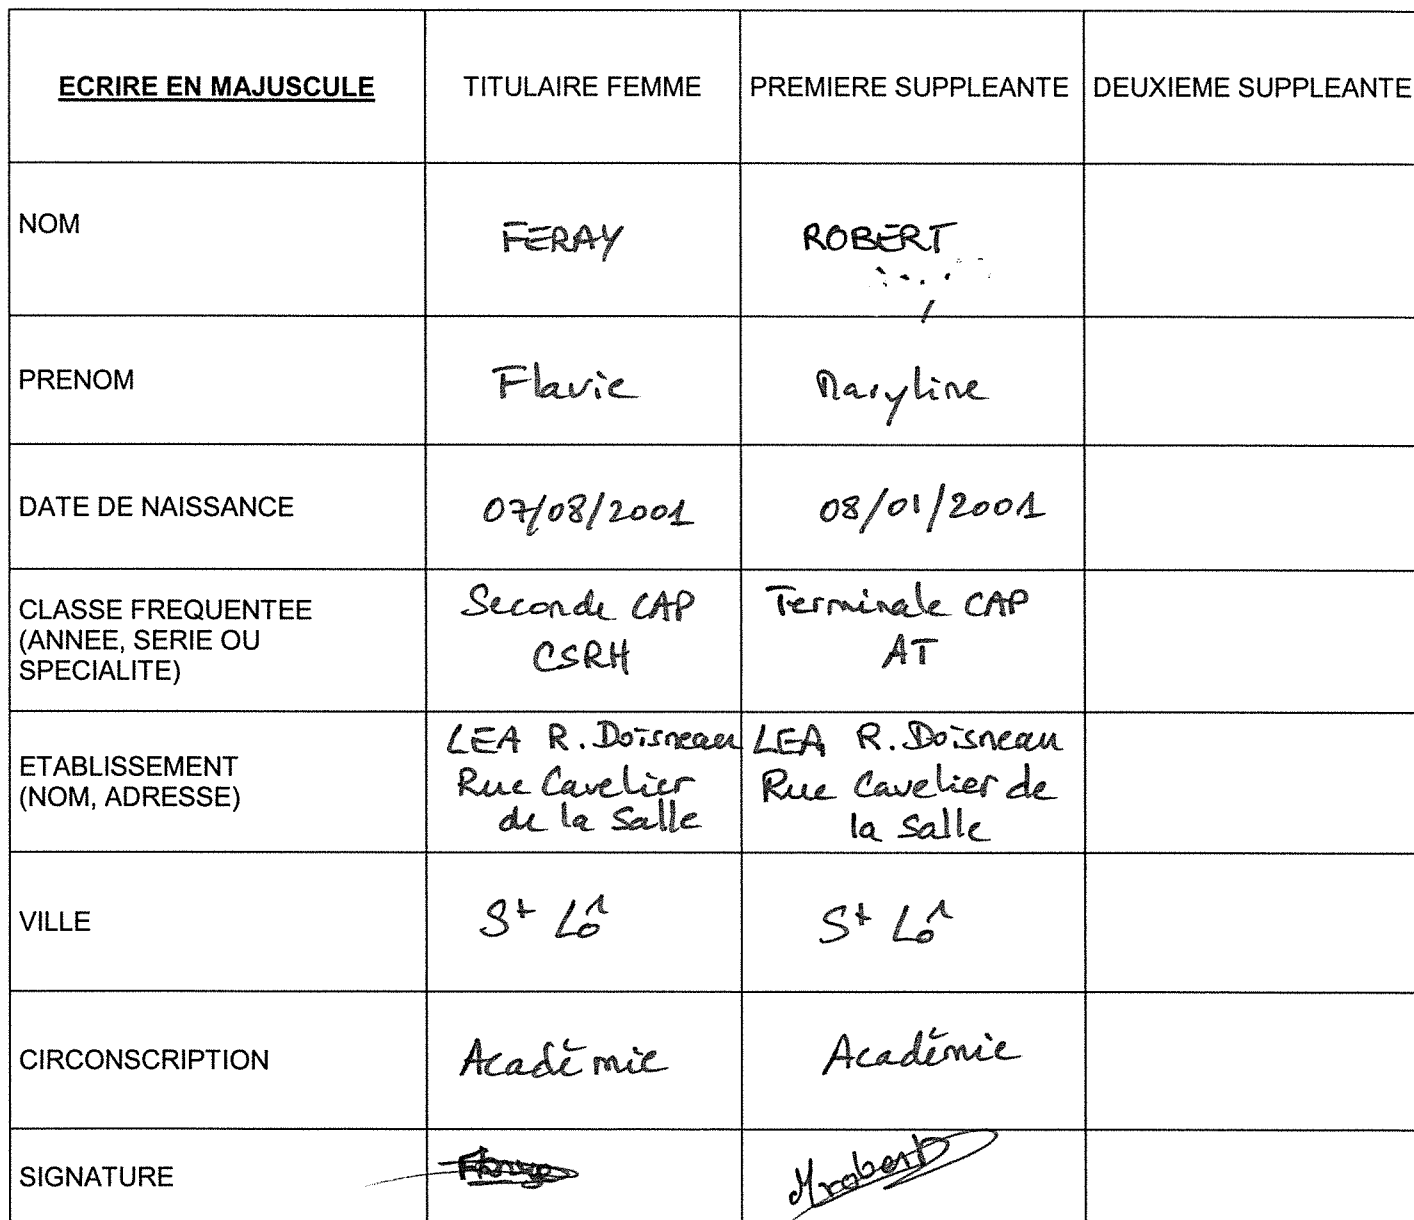 ECRIRE EN MAJUSCULE TITULAIRE FEMME PREMIERE SUPPLEANTE DEUXIEME SUPPLEANTE
NOM FERAY ROBERT
PRENOM Flavie Maryline
DATE DE NAISSANCE 07/08/2001 08/01/2001
CLASSE FREQUENTEE
(ANNEE, SERIE OU
SPECIALITE)
Seconde CAP
CSRH
Terminale CAP
AT
ETABLISSEMENT
(NOM, ADRESSE)
LEA R. Doisneau
Rue Cavelier
de la Salle
LEA R. Doisneau
Rue Cavelier de
la Salle
VILLE St Lô St Lô
CIRCONSCRIPTION Académie Académie
SIGNATURE Mrobert